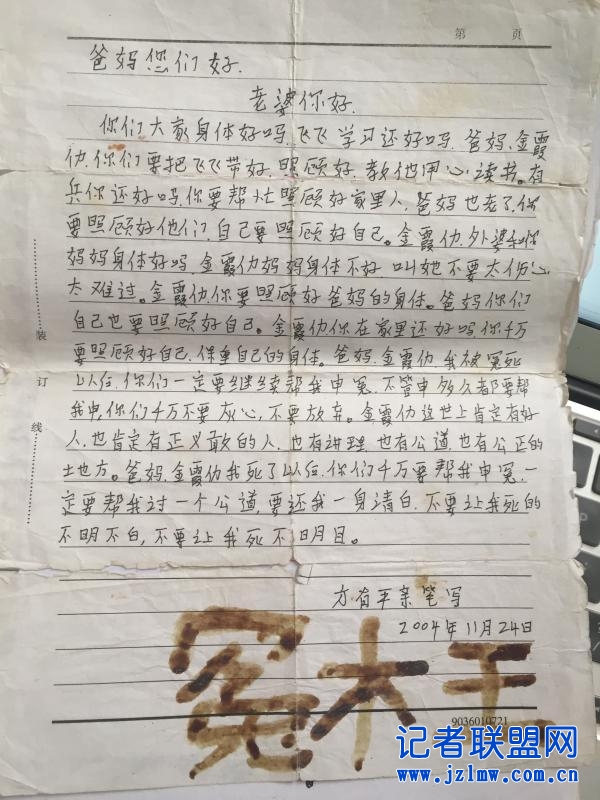 第 页
爸妈您们好.
老婆你好.
你们大家身体好吗,飞飞学习还好吗.爸妈.金霞
仂.你们要把飞飞带好.照顾好.教他用心读书。有
兵你还好吗.你要帮忙照顾好家里人,爸妈也老了.你
要照顾好他们,自己要照顾好自己。金霞仂.外婆和你
妈妈身体好吗.金霞仂妈妈身体不好 叫她不要太伤心
太难过。金霞仂.你要照顾好爸妈的身体。爸妈你们
自己也要照顾好自己。金霞仂你在家里还好吗.你千万
要照顾好自己.保重自己的身体。爸妈.金霞仂.我被冤死
以后.你们一定要继续帮我申冤.不管申多久都要帮
我申,你们千万不要灰心,不要放弃。金霞仂这世上肯定有好
人.也肯定有正义敢的人.也有讲理.也有公道.也有公正的
土地方。爸妈.金霞仂我死了以后.你们千万要帮我申冤.一
定要帮我讨一个公道,要还我一身清白.不要让我死的
不明不白,不要让我死不明目。
方有平亲笔写
2004年11月24日
冤 大 王
9036010721
装
订
线
记者联盟网
www.jzlmw.com.cn